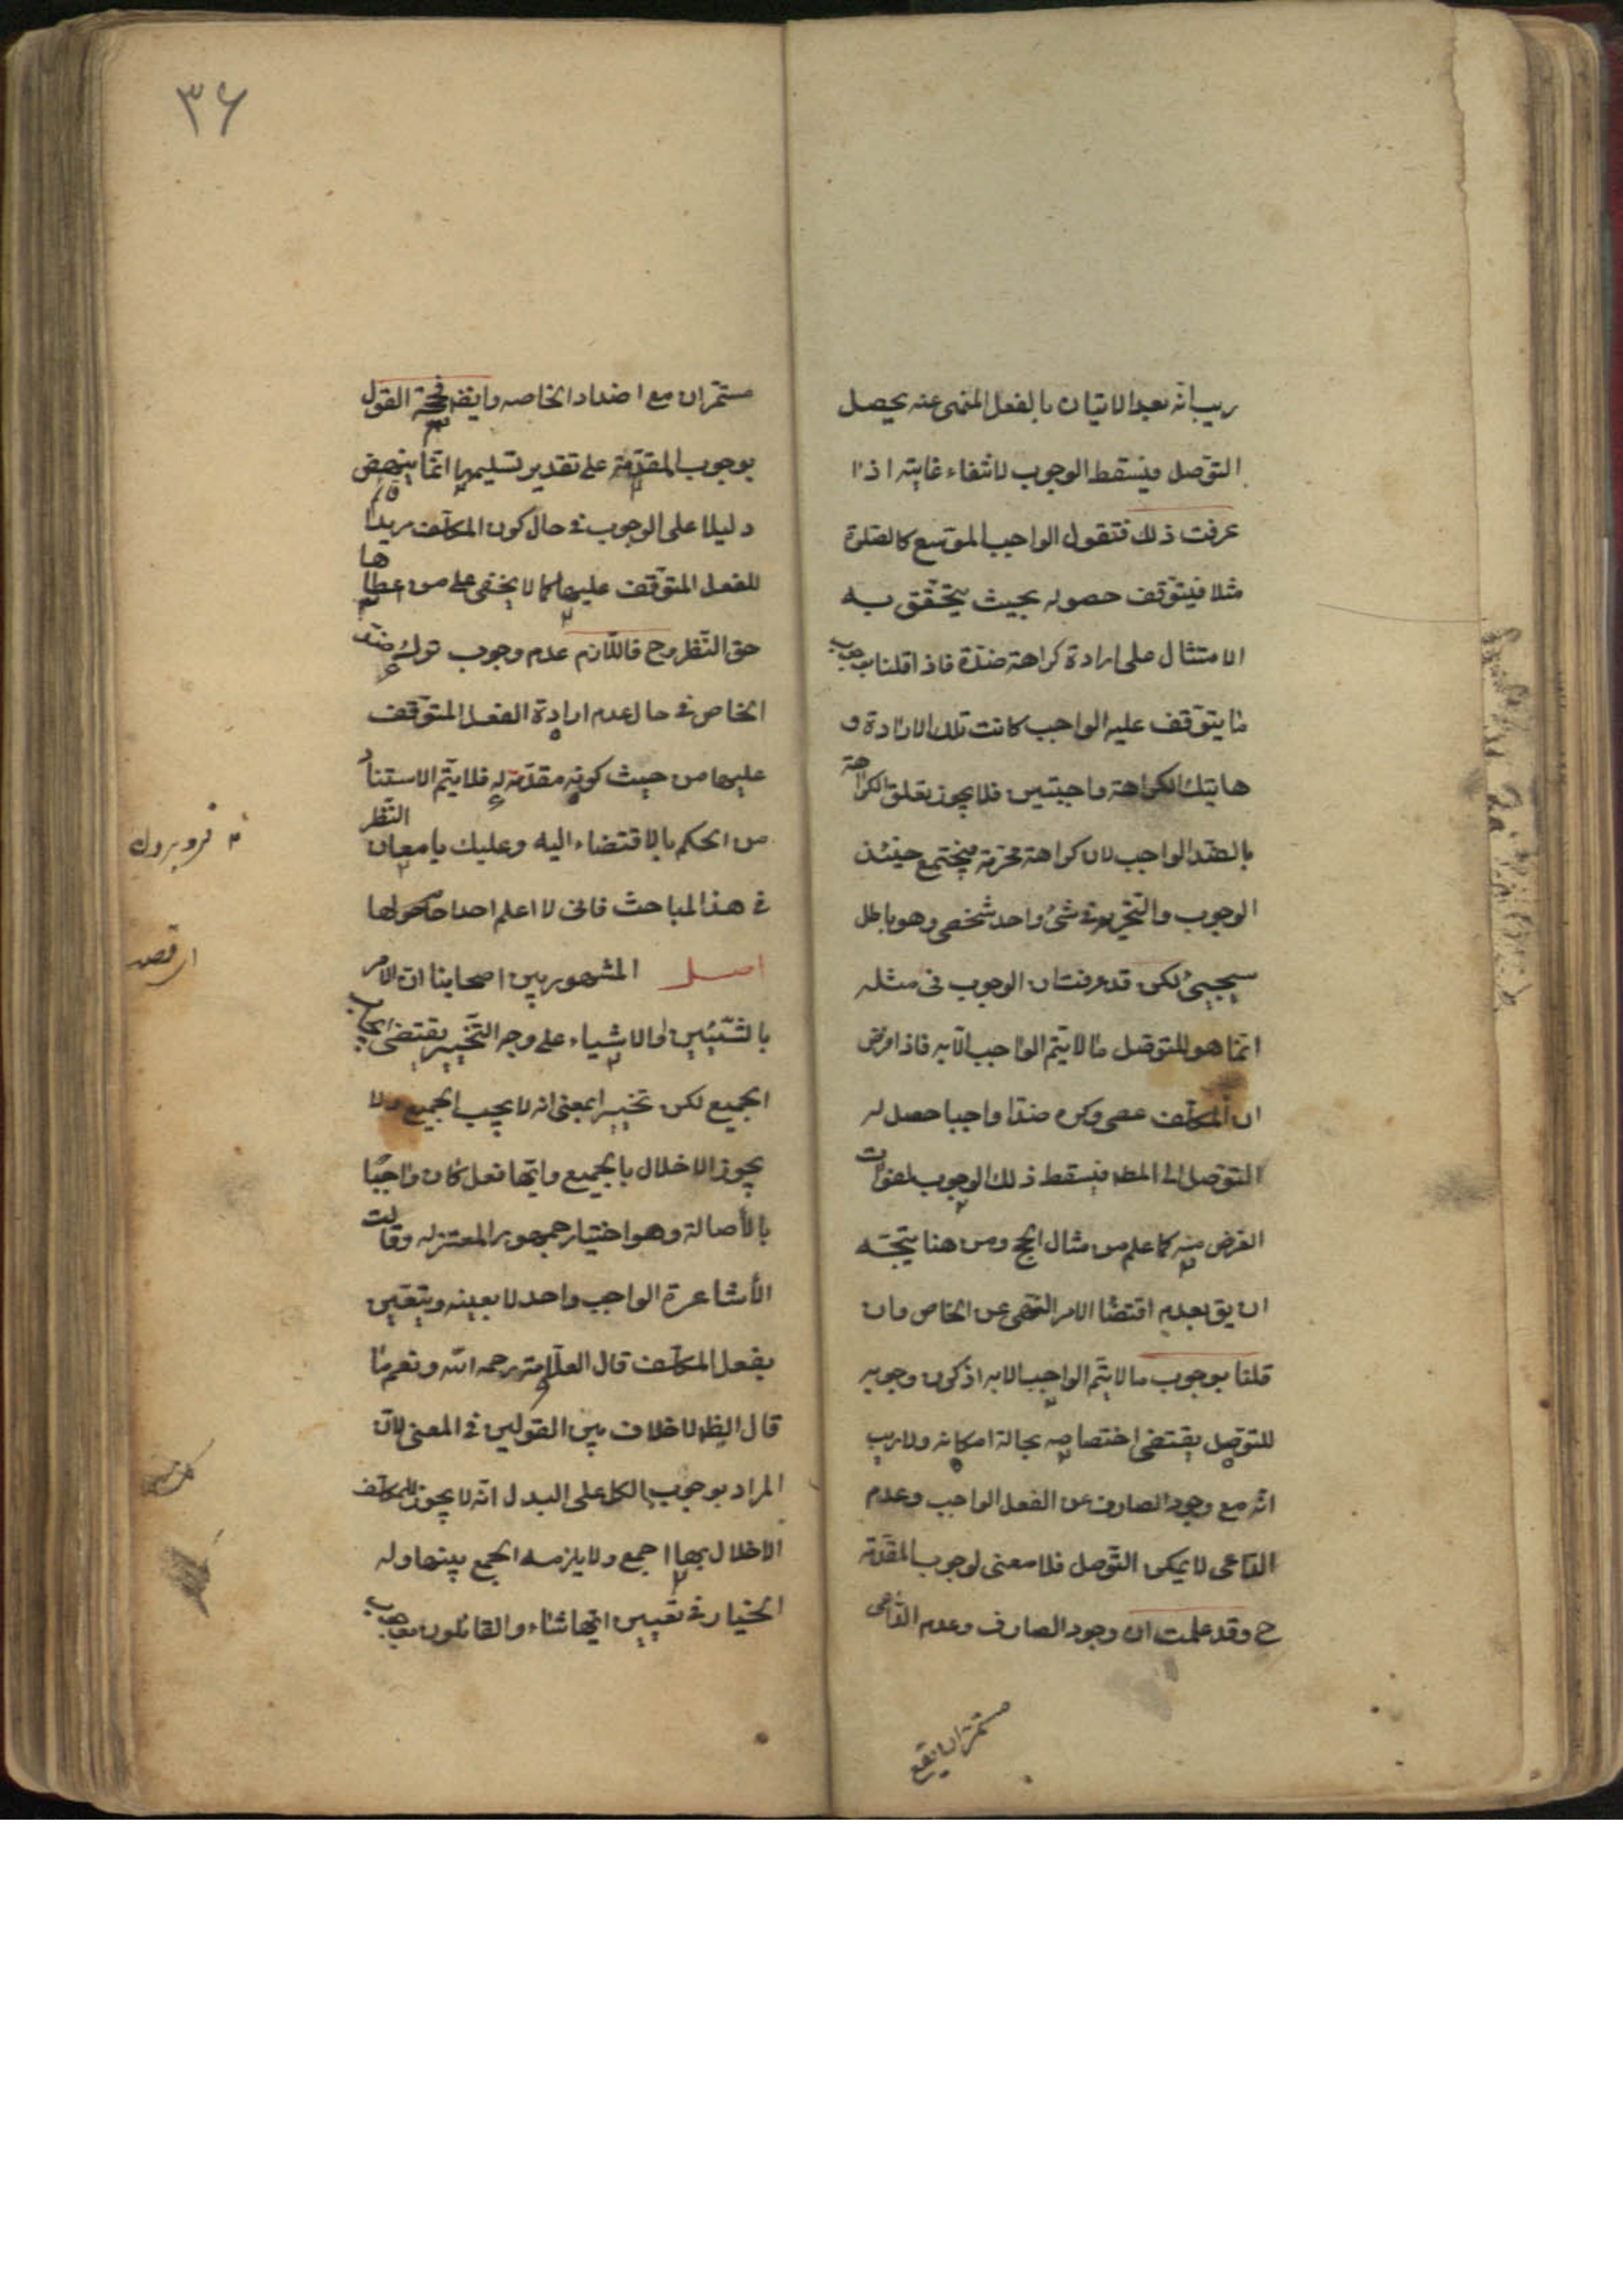 ريب انه بعد الاتيان بالفعل المنهى عنه يحصل
التوصل فيسقط الوجوب لانتفاء غايته اذا
عرفت ذلك فنقول الواجب الموسع كالصلوة
مثلا فيتوقف حصوله بحيث يتحقق به
الامتثال على ارادة كراهة ضدة فاذا قلنا بوجوب
ما يتوقف عليه الواجب كانت تلك الارادة و
هاتيك الكراهة واجبتين فلا يجوز تعلق الكراهة
بالضد الواجب لان كراهة محرمة فيجتمع حينئذ
الوجوب والتحريم فى شئ واحد شخصى وهو باطل
سيجيئ لكن قد عرفت ان الوجوب فى مثله
انما هو للتوصل ما لا يتم الواجب الا به فاذا فرض
ان المكلف عصى وكره ضدا واجبا حصل له
التوصل الى المط فيسقط ذلك الوجوب لفوات
الغرض منه كما علم من مثال الحج ومن هنا يتجه
ان يق بعدم اقتضا الامر النهى عن الخاص وان
قلنا بوجوب ما لا يتم الواجب الا به اذ كون وجوبه
للتوصل يقتضى اختصاصه بحالة امكانه ولا ريب
انه مع وجود الصارف عن الفعل الواجب وعدم
الداعى لا يمكن التوصل فلا معنى لوجوب المقدمة
ح وقد علمت ان وجود الصارف وعدم الداعى
مستمران
٣٦
مستمران مع اضداد الخاصه وايض فحجة القول
بوجوب المقدمة على تقدير تسليمها انما ينهض
دليلا على الوجوب فى حال كون المكلف مريدا
للفعل المتوقف عليها كما لا يخفى على من اعطاها
حق النظر وح فاللازم عدم وجوب ترك ضد
الخاص فى حال عدم ارادة الفعل المتوقف
عليها من حيث كونه مقدمة له فلا يتم الاستناد
من الحكم بالاقتضاء اليه وعليك بامعان النظر
فى هذا المباحث فانى لا اعلم احدا حام حولها
اصل المشهور بين اصحابنا ان الامر
بالشيئين او الاشياء على وجه التخيير يقتضى ايجاب
الجميع لكن تخييرا بمعنى انه لا يجب الجميع ولا
يجوز الاخلال بالجميع وايها فعل كان واجبا
بالأصالة وهو اختيار جمهور المعتزله وقالت
الأشاعرة الواجب واحد لا بعينه ويتعين
بفعل المكلف قال العلامة رحمه الله ونعم ما
قال الظ لا خلاف بين القولين فى المعنى لان
المراد بوجوب الكل على البدل انه لا يجوز للمكلف
الاخلال بها اجمع ولا يلزمه الجمع بينها وله
الخيار فى تعيين ايها شاء والقائلون بوجوب